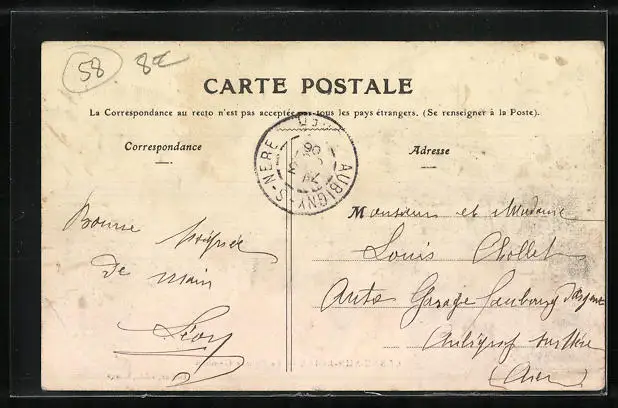 58
8€
CARTE POSTALE
La Correspondance au recto n'est pas acceptée par tous les pays étrangers. (Se renseigner à la Poste).
Correspondance
Adresse
AUBIGNY-S-NERE
Bonne poignée
de main
Léon
Monsieur et Madame
Louis Chollet
Auto Garage Faubourg d'Argent
Aubigny sur Nère
(Cher)